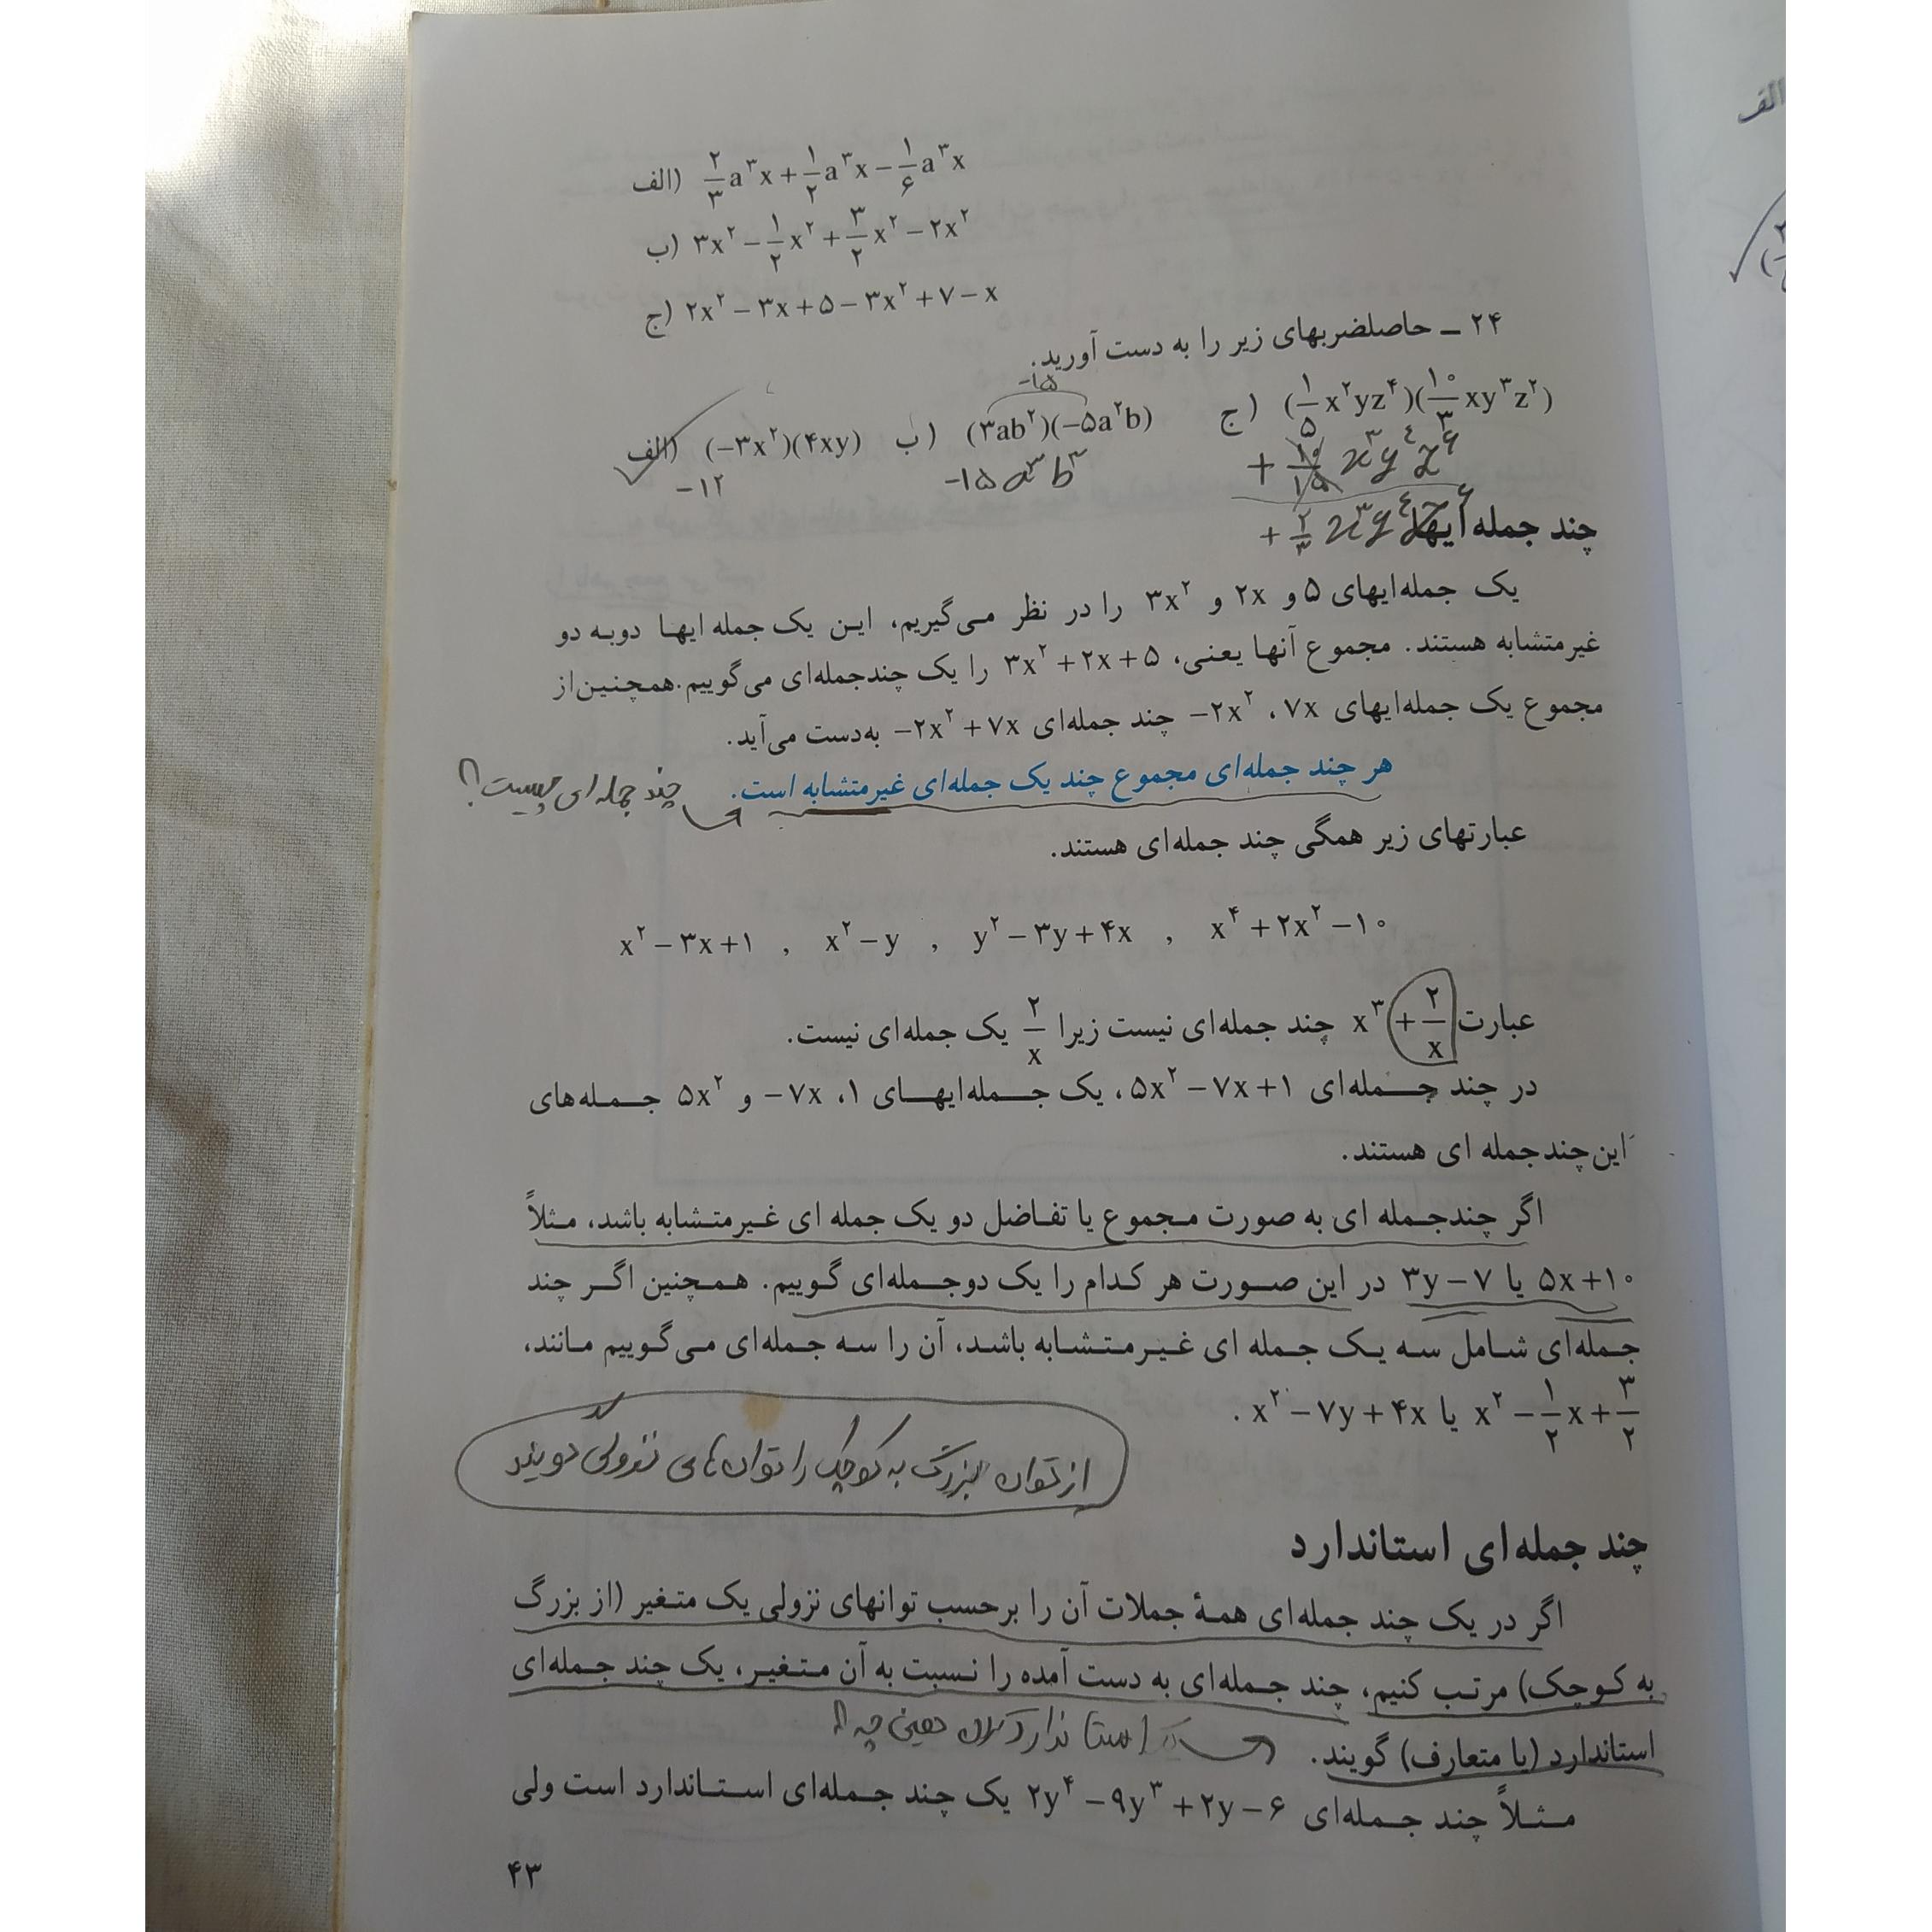 الف) ۲/۳ a^۳x + ۱/۲ a^۳x − ۱/۶ a^۳x
ب) ۳x^۲ − ۱/۲ x^۲ + ۳/۲ x^۲ − ۲x^۲
ج) ۲x^۲ − ۳x + ۵ − ۳x^۲ + ۷ − x
۲۴ ـ حاصلضربهای زیر را به دست آورید.
−۱۵
الف) (−۳x^۲)(۴xy) ب) (۳ab^۲)(−۵a^۲b) ج) (۱/۵ x^۲yz^۴)(۱۰/۳ xy^۳z^۲)
−۱۲ −۱۵a^۳b^۳ + ۱۰/۱۵ x^۳y^۴z^۶
+ ۲/۳ x^۳y^۴z^۶
چند جمله‌ایها
یک جمله‌ایهای ۵ و ۲x و ۳x^۲ را در نظر می‌گیریم، این یک جمله ایها دوبه دو
غیرمتشابه هستند. مجموع آنها یعنی، ۳x^۲+۲x+۵ را یک چندجمله‌ای می‌گوییم. همچنین از
مجموع یک جمله‌ایهای ۷x، −۲x^۲ چند جمله‌ای −۲x^۲+۷x به‌دست می‌آید.
هر چند جمله‌ای مجموع چند یک جمله‌ای غیرمتشابه است. چند جمله ای چیست؟
عبارتهای زیر همگی چند جمله‌ای هستند.
x^۲−۳x+۱ , x^۲−y , y^۲−۳y+۴x , x^۴+۲x^۲−۱۰
عبارت x^۳+۲/x چند جمله‌ای نیست زیرا ۲/x یک جمله‌ای نیست.
در چند جمله‌ای ۵x^۲−۷x+۱، یک جمله‌ایهای ۱، −۷x و ۵x^۲ جمله‌های
این چندجمله ای هستند.
اگر چندجمله ای به صورت مجموع یا تفاضل دو یک جمله ای غیرمتشابه باشد، مثلاً
۵x+۱۰ یا ۳y−۷ در این صورت هر کدام را یک دوجمله‌ای گوییم. همچنین اگر چند
جمله‌ای شامل سه یک جمله ای غیرمتشابه باشد، آن را سه جمله‌ای می‌گوییم مانند،
x^۲−۱/۲x+۳/۲ یا x^۲−۷y+۴x.
از توان بزرگ به کوچک را توان‌های نزولی گویند
چند جمله‌ای استاندارد
اگر در یک چند جمله‌ای همهٔ جملات آن را برحسب توانهای نزولی یک متغیر (از بزرگ
به کوچک) مرتب کنیم، چند جمله‌ای به دست آمده را نسبت به آن متغیر، یک چند جمله‌ای
استاندارد (یا متعارف) گویند. استاندارد یعنی چه؟
مثلاً چند جمله‌ای ۲y^۴−۹y^۳+۲y−۶ یک چند جمله‌ای استاندارد است ولی
۴۳
الف